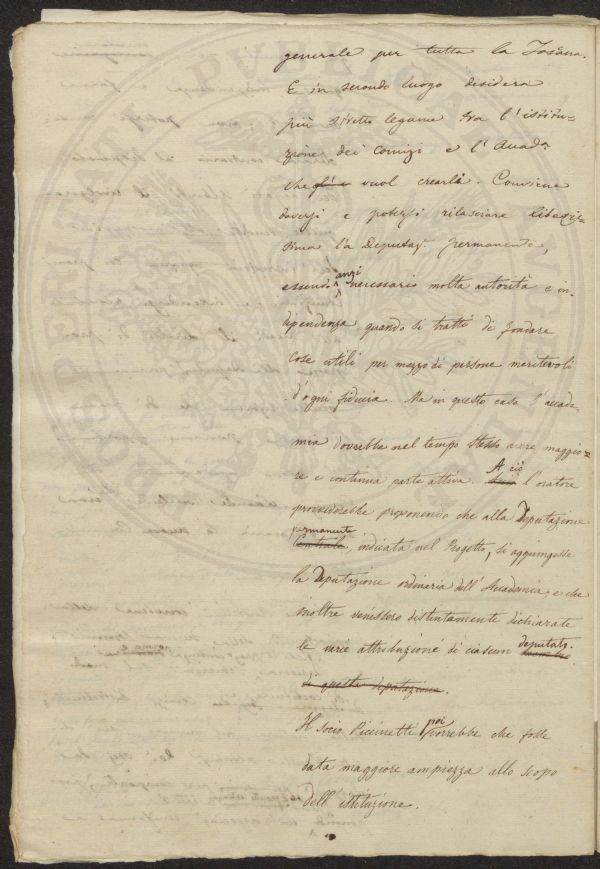 generale per tutta la Toscana.
E in secondo luogo desidera
più stretto legame tra l'istitu-
zione dei Comizj e l'Accad.a
che gl'è vuol crearli. Conviene
doversi e potersi rilasciare libertis-
sima la Deputaz.e permanente,
essendo anzi necessario molta autorità e in-
dipendenza quando si tratti di fondare
cose utili per mezzo di persone meritevoli
d'ogni fiducia. Ma in questo caso l'accade-
mia dovrebbe nel tempo stesso avere maggio-
re e continua parte attiva. A ciò l'oratore
provvederebbe proponendo che alla Deputazione
permanente
Centrale, indicata nel Progetto, si aggiungesse
la Deputazione ordinaria dell'Accademia; e che
inoltre venissero distintamente dichiarate
le varie attribuzioni di ciascun deputato.
di questa deputazione.
Il socio Puccinetti poi vorrebbe che fosse
data maggiore ampiezza allo scopo
dell'istituzione.